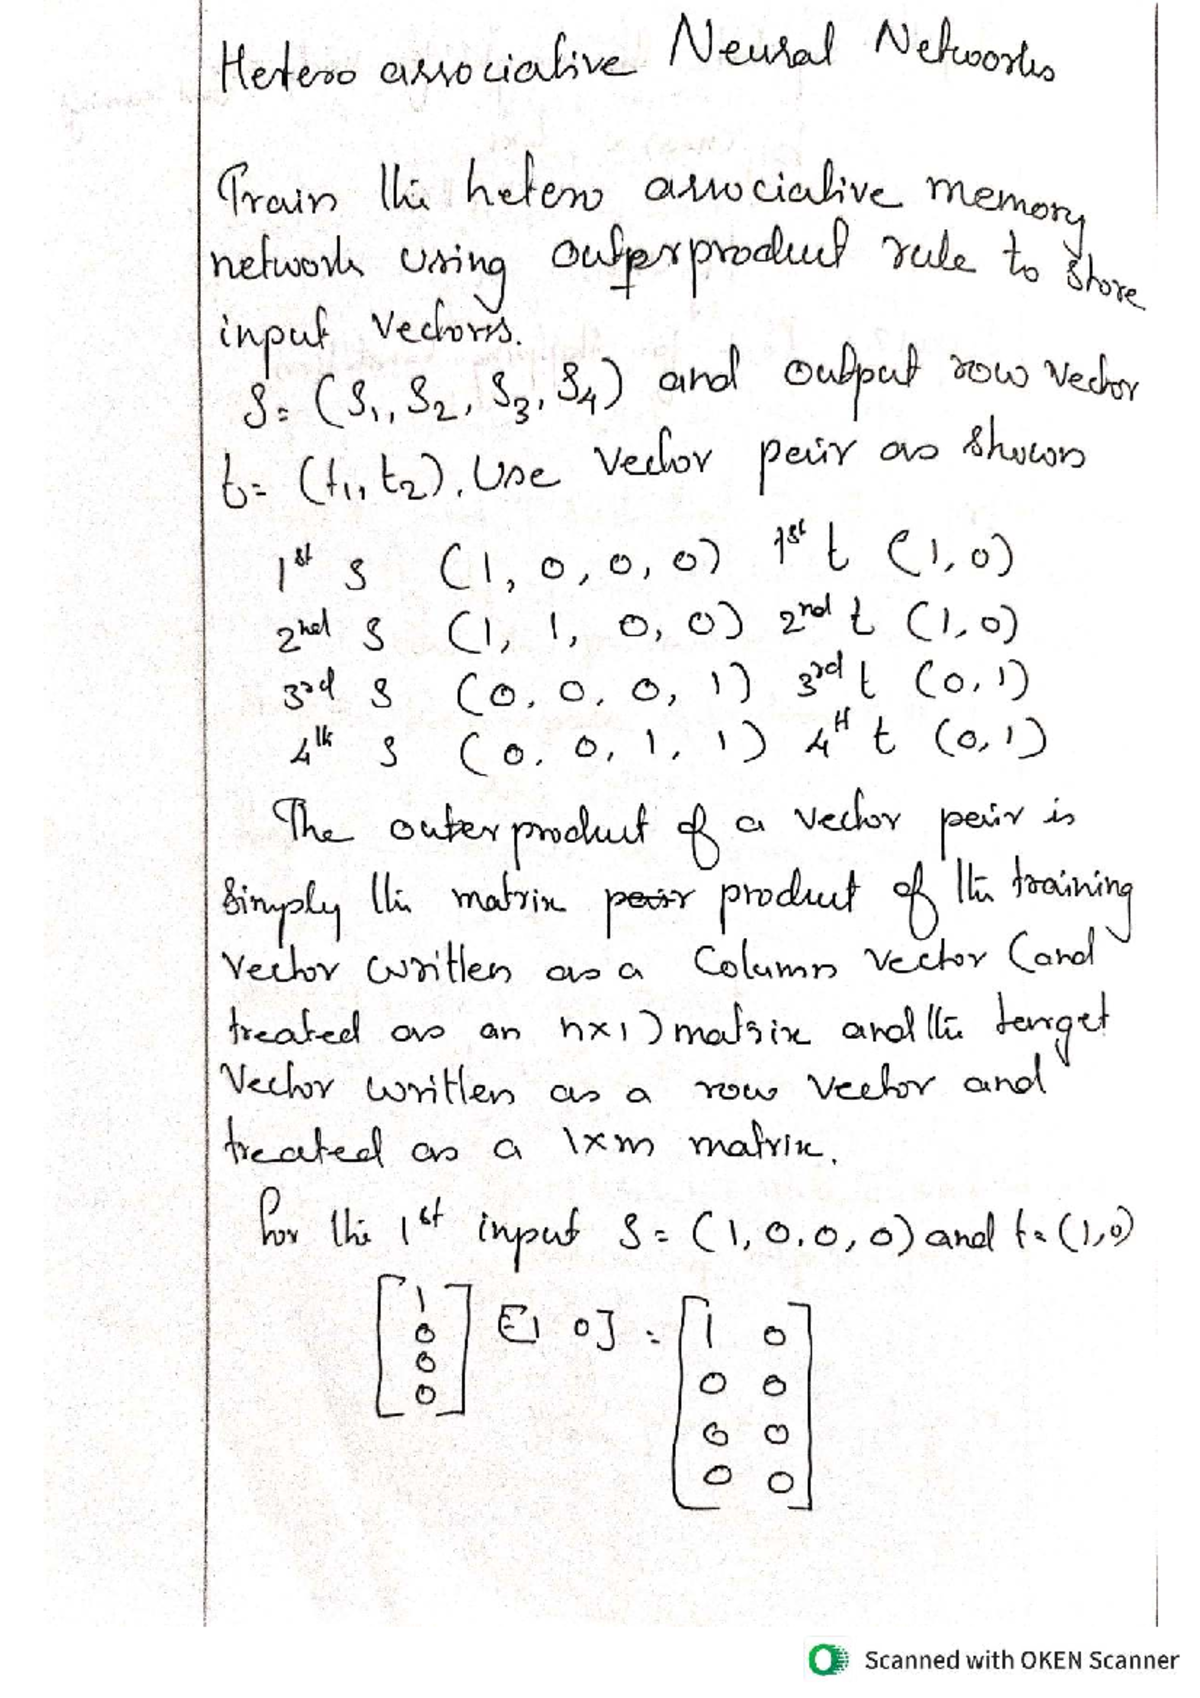 Hetero associative Neural Networks
Train the hetero associative memory
network using outerproduct rule to store
input vectors.
S = (S1, S2, S3, S4) and output row vector
t = (t1, t2). Use vector pair as shown
1st s (1, 0, 0, 0) 1st t (1, 0)
2nd s (1, 1, 0, 0) 2nd t (1, 0)
3rd s (0, 0, 0, 1) 3rd t (0, 1)
4th s (0, 0, 1, 1) 4th t (0, 1)
The outer product of a vector pair is
simply the matrix pair product of the training
vector written as a column vector (and
treated as an n×1) matrix and the target
vector written as a row vector and
treated as a 1×m matrix.
For the 1st input S = (1, 0, 0, 0) and t = (1, 0)
[1 [1 0] = [1 0
0 0 0
0 0 0
0] 0 0]
Scanned with OKEN Scanner